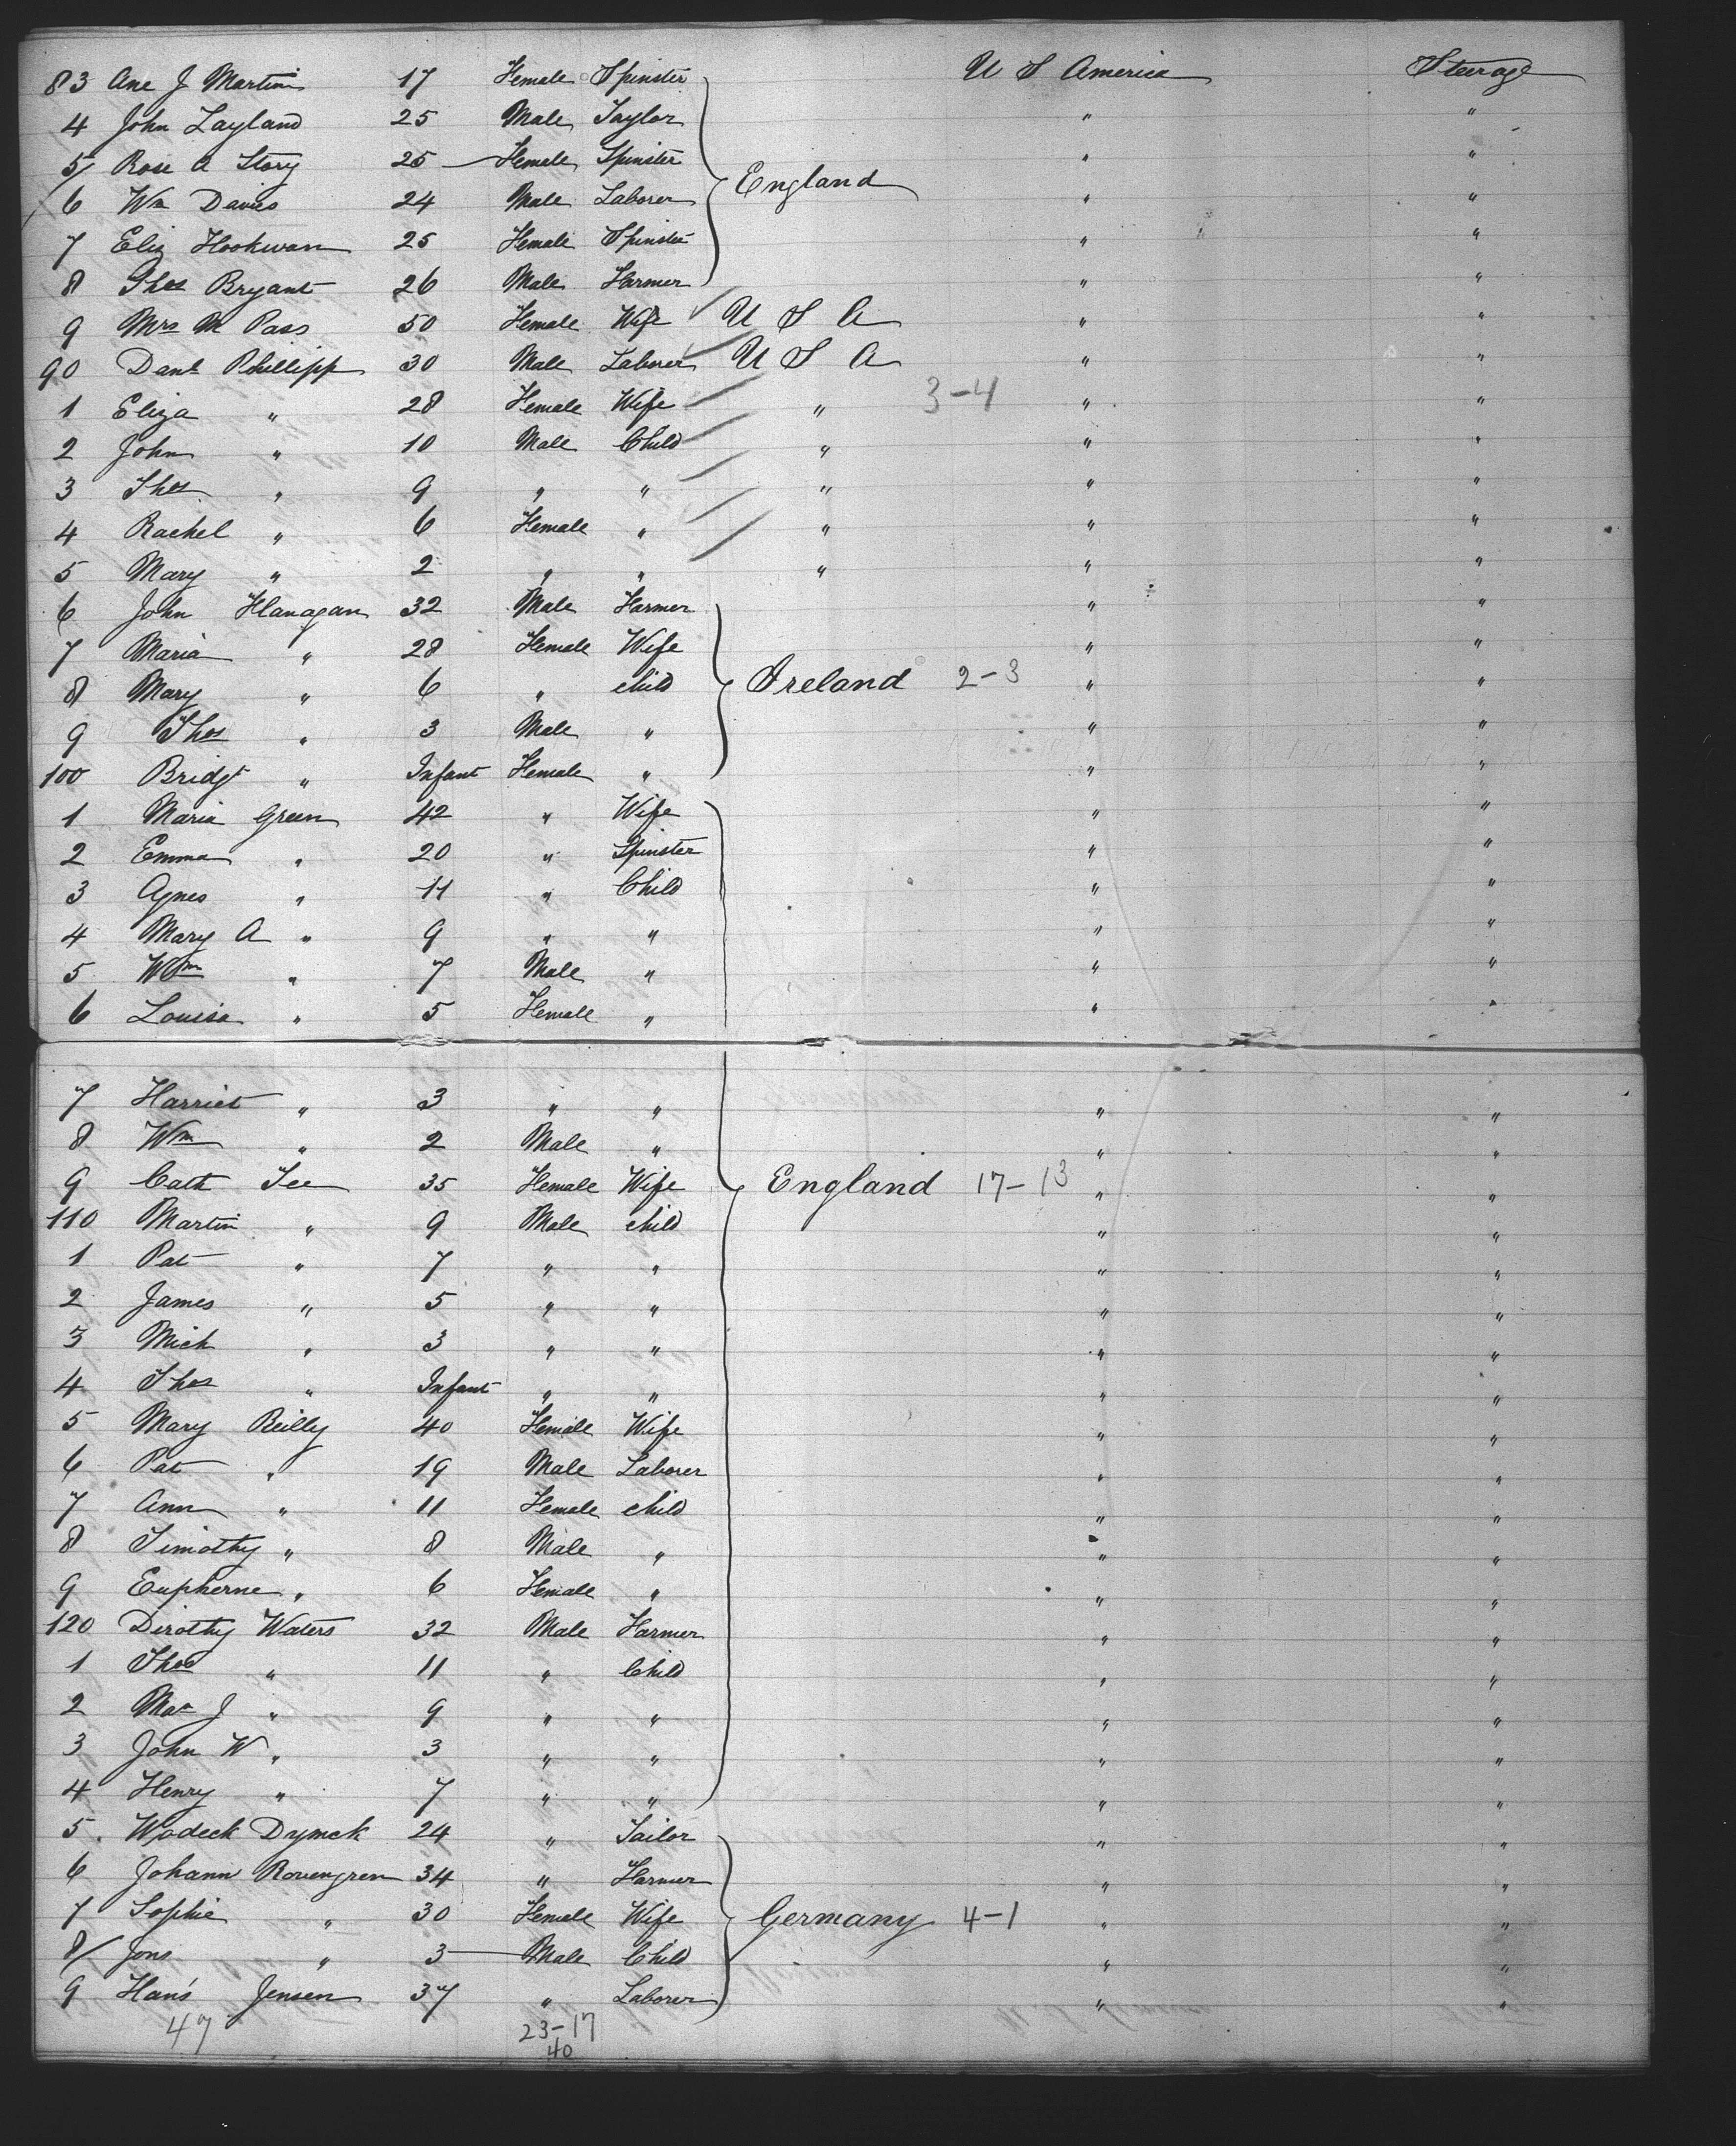 83 Ane J Martin 17 Female Spinster U S America Steerage
4 John Layland 25 Male Taylor " "
5/ Rose A Story 25 — Female Spinster " "
England
6 Wm Davies 24 Male Laborer " "
7 Eliz Hookwan 25 Female Spinster " "
8 Thos Bryant 26 Male Farmer " "
9 Mrs M Pass 50 Female Wife U S A " "
90 Danl Phillipp 30 Male Laborer U S A " "
1 Eliza " 28 Female Wife " 3-4 " "
2 John " 10 Male Child " " "
3 Thos " 9 " " " " "
4 Rachel " 6 Female " " " "
5 Mary " 2 " " " " "
6 John Flanagan 32 Male Farmer " "
7 Maria " 28 Female Wife " "
8 Mary " 6 " child Ireland 2-3 " "
9 Thos " 3 Male " " "
100 Bridgt " Infant Female " " "
1 Maria Green 42 " Wife " "
2 Emma " 20 " Spinster " "
3 Agnes " 11 " Child " "
4 Mary A " 9 " " " "
5 Wm " 7 Male " " "
6 Louisa " 5 Female " " "
7 Harriet " 3 " " " "
8 Wm " 2 Male " " "
9 Cath Tee 35 Female Wife England 17-13 " "
110 Martin " 9 Male child " "
1 Pat " 7 " " " "
2 James " 5 " " " "
3 Mich " 3 " " " "
4 Thos " Infant " " " "
5 Mary Reilly 40 Female Wife " "
6 Pat " 19 Male Laborer " "
7 Ann " 11 Female child " "
8 Timothy " 8 Male " " "
9 Eupherne " 6 Female " " "
120 Dirothy Waters 32 Male Farmer " "
1 Thos " 11 " Child " "
2 J " 9 " " " "
3 John W " 3 " " " "
4 Henry " 7 " " " "
5 Wodeck Dymek 24 " Tailor " "
6 Johann Rouengren 34 " Farmer " "
7 Sophie " 30 Female Wife Germany 4-1 " "
8/ Jons " 3 — Male Child " "
9 Hans Jensen 37 " Laborer " "
47 23-17
40